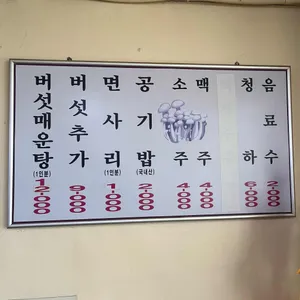 버섯매운탕
(1인분)
12,000
버섯추가
9,000
면사리
(1인분)
1,000
공기밥
(국내산)
2,000
소주
4,000
맥주
4,000
청하
6,000
음료수
2,000